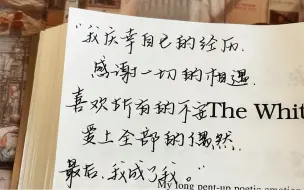 “我庆幸自己的经历.
感谢一切的相遇.
喜欢所有的不安
The Whit
爱上全部的偶然.
最后,我成了我。”
My long pent-up poetic emotion